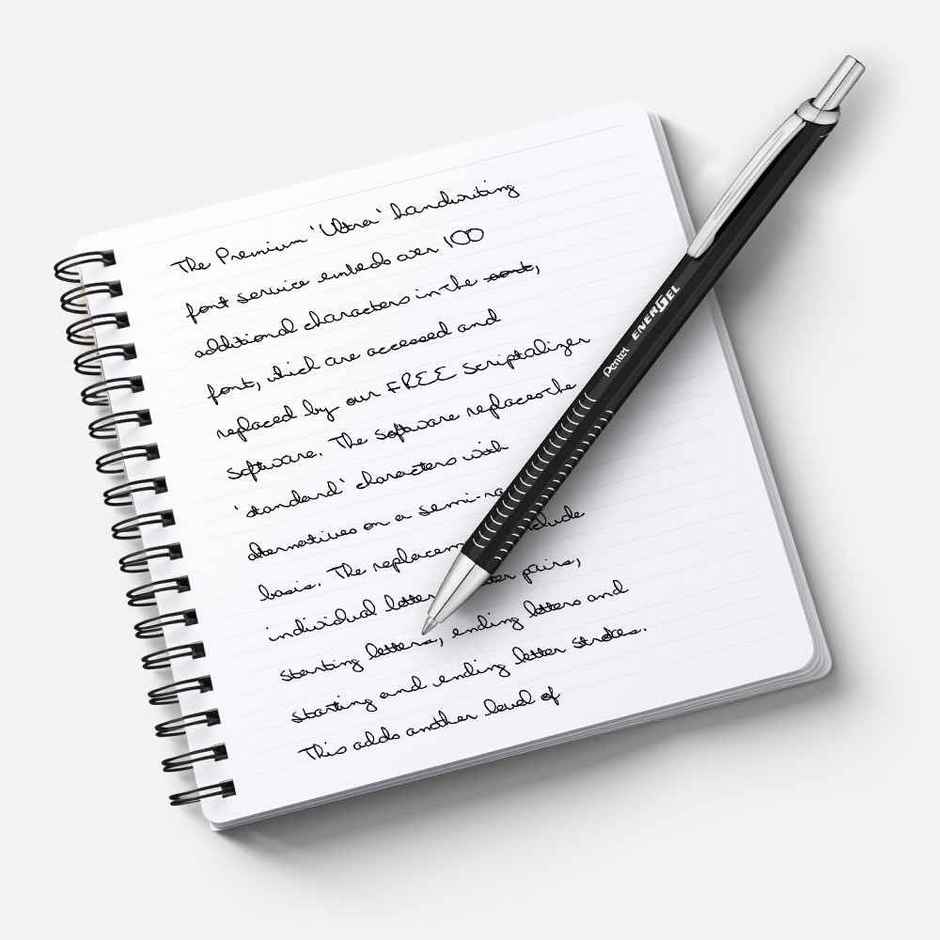 The Premium 'Ultra' handwriting
font service embeds over 100
additional characters in the font,
font, which are accessed and
replaced by our FREE Scriptalizer
Software. The Software replaces the
'standard' characters with
alternatives on a semi-ra
basis. The replacem clude
individual letter ter pairs,
starting letters, ending letters and
starting and ending letter strokes.
This adds another level of
Pentel ENERGEL